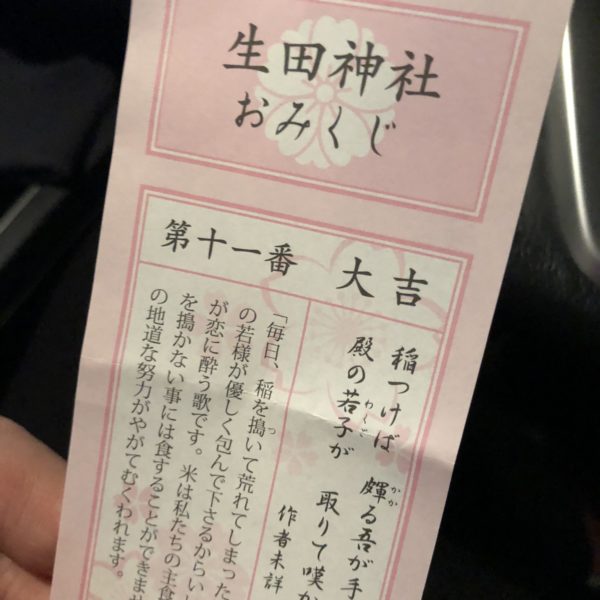 生田神社
おみくじ
第十一番 大吉
稲つけば 皹る吾が手
殿の若子が 取りて嘆か
作者未詳
「毎日、稲を搗いて荒れてしまった
の若様が優しく包んで下さるからいい
が恋に酔う歌です。米は私たちの主食
を搗かない事には食することができませ
の地道な努力がやがてむくわれます。